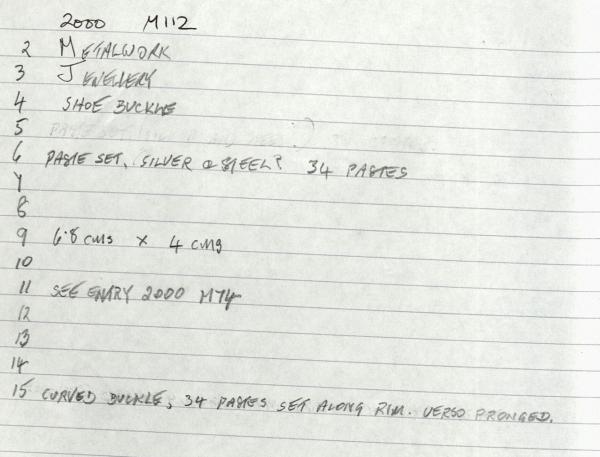 2000 M112
2 METALWORK
3 JEWELLERY
4 SHOE BUCKLE
5
6 PASTE SET, SILVER & STEEL? 34 PASTES
7
8
9 6.8 cms x 4 cms
10
11 SEE ENTRY 2000 M74
12
13
14
15 CURVED BUCKLE, 34 PASTES SET ALONG RIM. VERSO PRONGED.